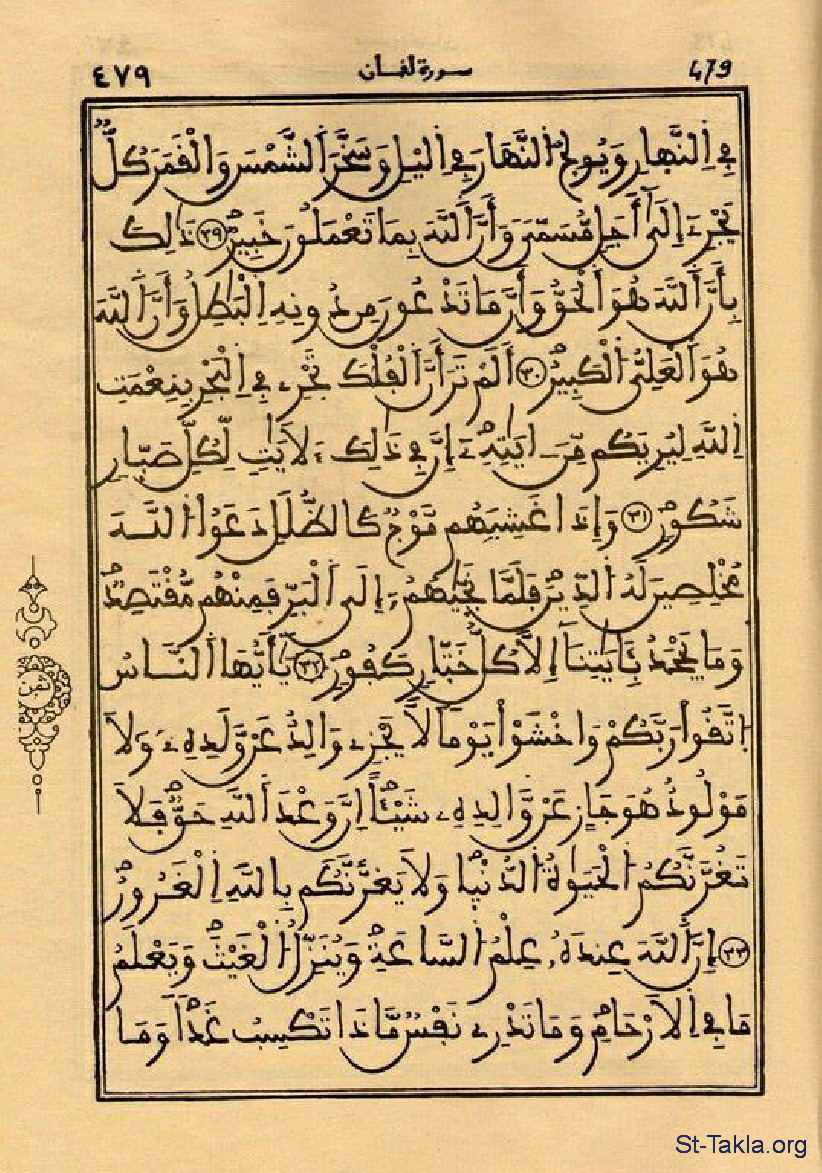 ٤٧٩ سورة لقمان 479
فِي اِلنَّهارِ وَيُولِجُ النَّهَارَ فِي اِليْلِ وَسَخَّرَ اَلشَّمْسَ وَالْقَمَرَ كُلٌّ
يَجْرِے إِلَىٰ أَجَلٍ مُّسَمًّى وَأَنَّ اَللَّهَ بِمَا تَعْمَلُونَ خَبِيرٌ ٢٩ ذَٰلِكَ
بِأَنَّ اَللَّهَ هُوَ اَلْحَقُّ وَأَنَّ مَا تَدْعُونَ مِن دُونِهِ اِلْبَٰطِلُ وَأَنَّ اَللَّهَ
هُوَ اَلْعَلِيُّ اُلْكَبِيرُ ٣٠ أَلَمْ تَرَ أَنَّ اَلْفُلْكَ تَجْرِے فِي اِلْبَحْرِ بِنِعْمَتِ
اِللَّهِ لِيُرِيَكُم مِّنَ ايَٰتِهِۦ إِنَّ فِي ذَٰلِكَ ءَلَايَٰتٍ لِّكُلِّ صَبّارٍ
شَكُورٍ ٣١ وَإِذَا غَشِيَهُم مَّوْجٌ كَالظُّلَلِ دَعَوُاْ اُللَّهَ
مُخْلِصِينَ لَهُ اُلدِّينَ فَلَمَّا نَجَّيٰهُمُۥ إِلَى اَلْبَرِّ فَمِنْهُم مُّقْتَصِدٌ
وَمَا يَجْحَدُ بِـَٔايَٰتِنَا إِلَّا كُلُّ خَتّارٍ كَفُورٍ ٣٢ يَٰأَيُّهَا اَلنَّاسُ
اُتَّقُواْ رَبَّكُمْ وَاخْشَوْاْ يَوْماً لَّا يَجْزِے وَالِدٌ عَنْ وَّلَدِهِۦ وَلَا
مَوْلُودٌ هُوَ جَازٍ عَنْ وَّالِدِهِۦ شَيْـًٔا اِنَّ وَعْدَ اَللَّهِ حَقٌّ فَلَا
تَغُرَّنَّكُمُ اُلْحَيَوٰةُ اُلدُّنْيا وَلَا يَغُرَّنَّكُم بِاللَّهِ اِلْغَرُورُ
٣٣ إِنَّ اَللَّهَ عِندَهُۥ عِلْمُ اُلسَّاعَةِ وَيُنَزِّلُ اُلْغَيْثَ وَيَعْلَمُ
مَا فِي اِلَارْحَامِ وَمَا تَدْرِے نَفْسٌ مَّاذَا تَكْسِبُ غَدًا وَمَا
ثمن
St-Takla.org